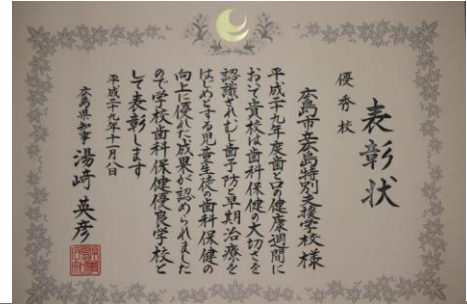 表彰状
優秀校
広島市立広島特別支援学校 様
平成二十九年度歯と口の健康週間に
おいて貴校は歯科保健の大切さを
認識されむし歯予防と早期治療を
はじめとする児童生徒の歯科保健の
向上に優れた成果が認められました
ので学校歯科保健優良学校と
して表彰します
平成二十九年十一月八日
広島県知事 湯﨑 英彦